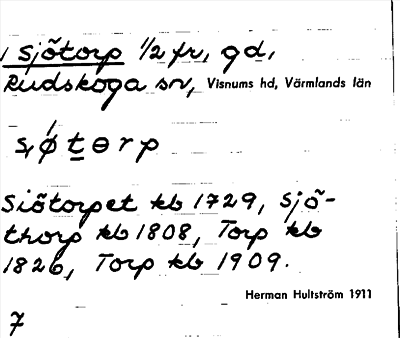 Sjötorp 1/2 fr, gd,
Rudskoga sn, Visnums hd, Värmlands län
s,øtɵrp
Siötorpet kb 1729, Sjö-
thorp kb 1808, Torp kb
1826, Torp kb 1909.
Herman Hultström 1911
7